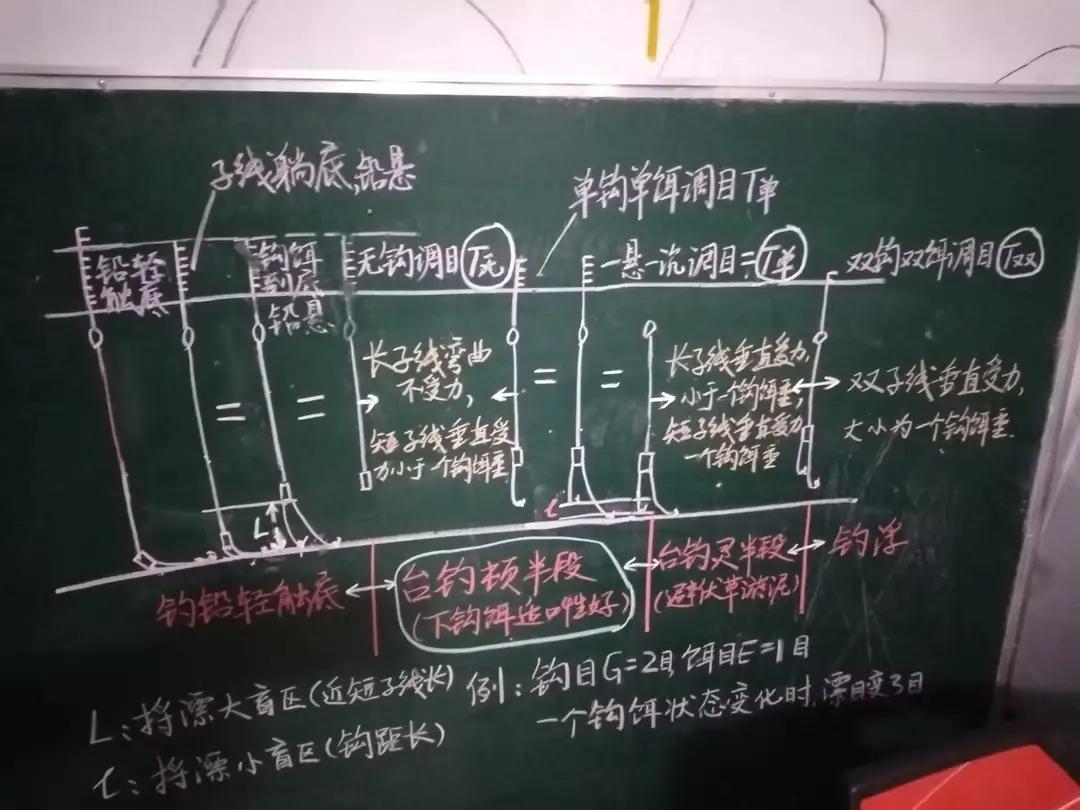 子线躺底,铅悬
单钩单饵调目T单
铅轻
触底
钩饵
到底
铅悬
无钩调目T无
一悬一沉调目=T单
双钩双饵调目T双
长子线弯曲
不受力,
短子线垂直受
力小于一个钩饵重
=
=
=
=
长子线垂直受力,
小于一个钩饵重;
短子线垂直受力
一个钩饵重
双子线垂直受力,
大小为一个钩饵重.
L
l
钓铅轻触底
台钓顿半段
(下钩饵适口性好)
台钓灵半段
(避伏草淤泥)
钓浮
L:捋漂大盲区(近短子线长)
l:捋漂小盲区(钩距长)
例:钩目G=2目,饵目E=1目
一个钩饵状态变化时,漂目变3目